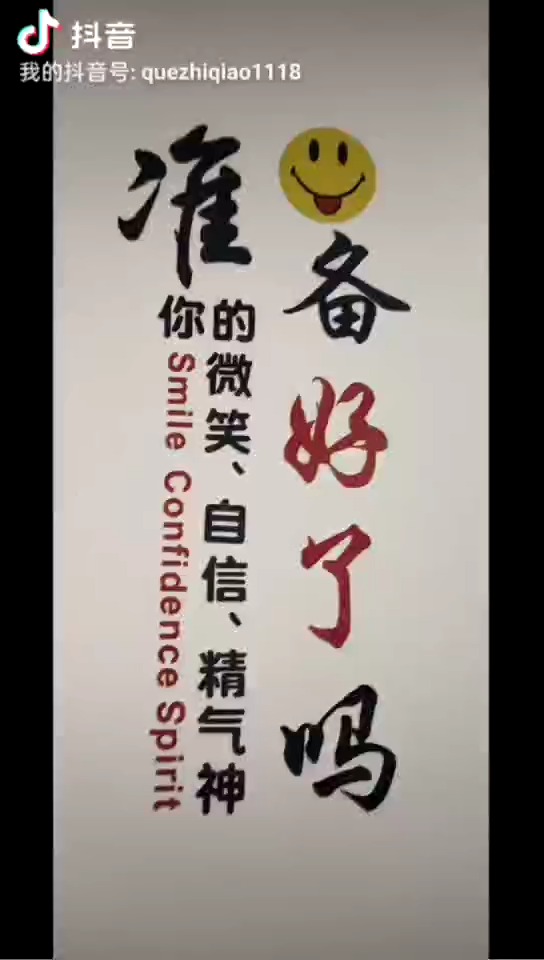 抖音
我的抖音号: quezhiqiao1118
准备好了吗
你的微笑、自信、精气神
Smile Confidence Spirit